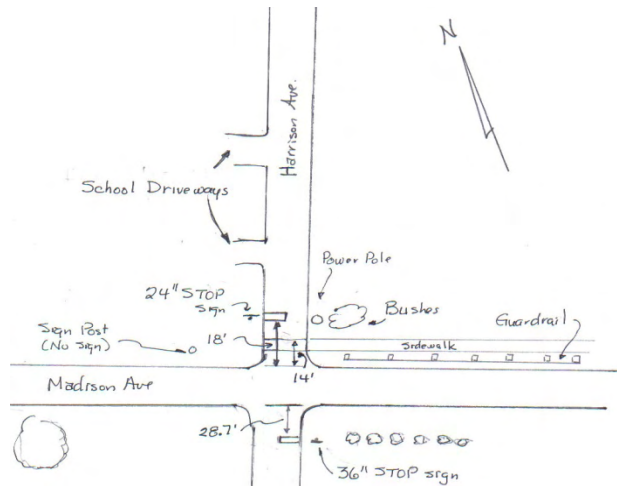 N
Harrison Ave.
School Driveways
Power Pole
24" STOP
sign
Bushes
Guardrail
Sign Post
(No Sign)
18'
Sidewalk
14'
Madison Ave
28.7'
36" STOP sign